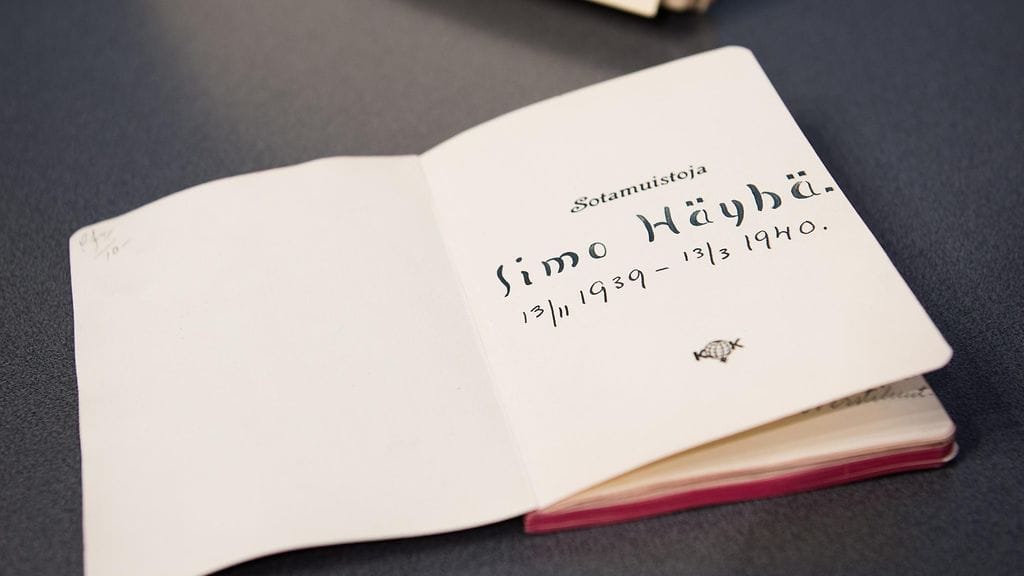 Sotamuistoja
Simo Häyhä.
13/11 1939 – 13/3 1940.
K K